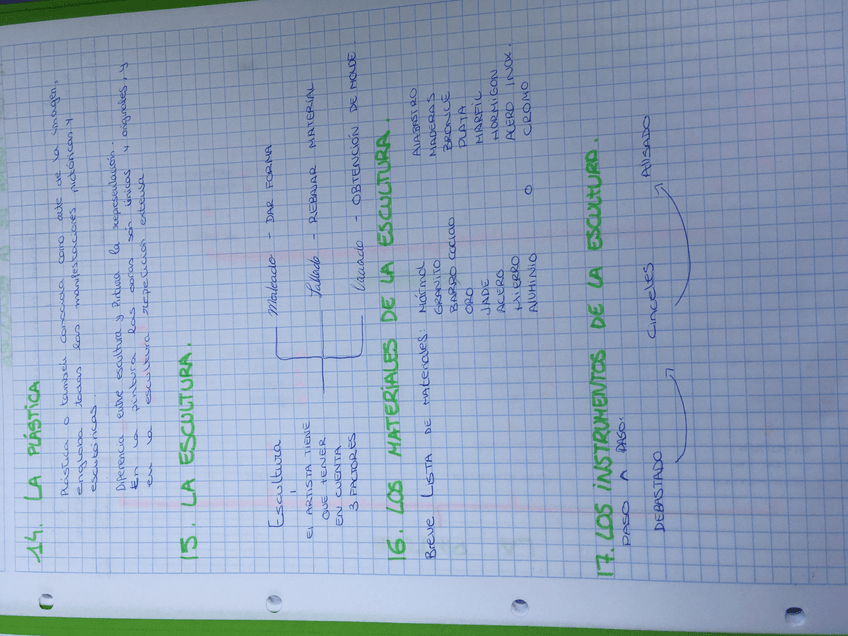 14. LA PLÁSTICA
Plástica o también conocida como arte de la imagen,
engloba todas las manifestaciones pictóricas y
escultóricas.
Diferencia entre escultura y Pintura la representación.
En la pintura las obras són únicas y originales, y
en la escultura repetición extensa
15. LA ESCULTURA.
Escultura
El ARTISTA TIENE
QUE TENER
EN CUENTA
3 FACTORES
Modeado - DAR FORMA
Tallado - REBAJAR MATERIAL
Vaciado - OBTENCIÓN DE MOLDE
16. LOS MATERIALES DE LA ESCULTURA.
Breve LISTA DE MATERIALES:
Mármol
GRANITO
BARRO COCIDO
ORO
JADE
ACERO
HIERRO
ALUMINIO
O
ALABASTRO
MADERAS
BRONCE
PLATA
MARFIL
HORMIGON
ACERO INOX.
CROMO
17. LOS INSTRUMENTOS DE LA ESCULTURA.
PASO A PASO:
DEBASTADO
Cinceles
AliSADO